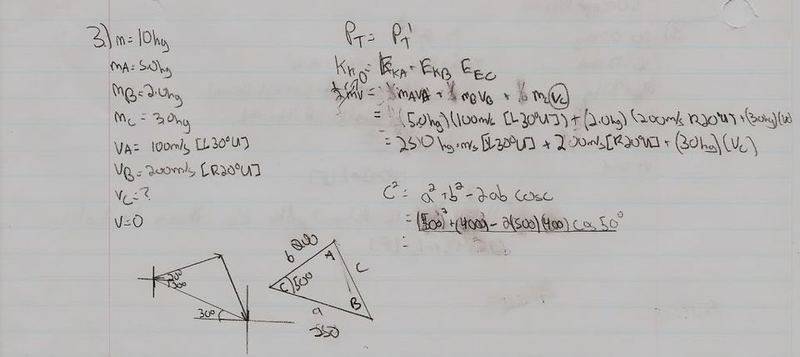 3.) m = 10kg
mA = 5.0kg
mB = 2.0kg
mC = 3.0kg
VA = 100m/s [L30°U]
VB = 200m/s [R20°U]
VC = ?
V = 0
PT = PT'
EKA + EKB EEC
= mAVA + mBVB + mcVc
= (5.0kg)(100m/s [L30°U]) + (2.0kg)(200m/s R20°U) + (30kg)
= 2510 kg·m/s [L30°U] + 200m/s [R20°U] + (30kg)(VC)
C² = a² + b² - 2ab cosc
= (500)² + (400)² - 2(500)(400) cos 50°
=
20°
30°
30°
b 200
A
C
C
50°
a
B
550